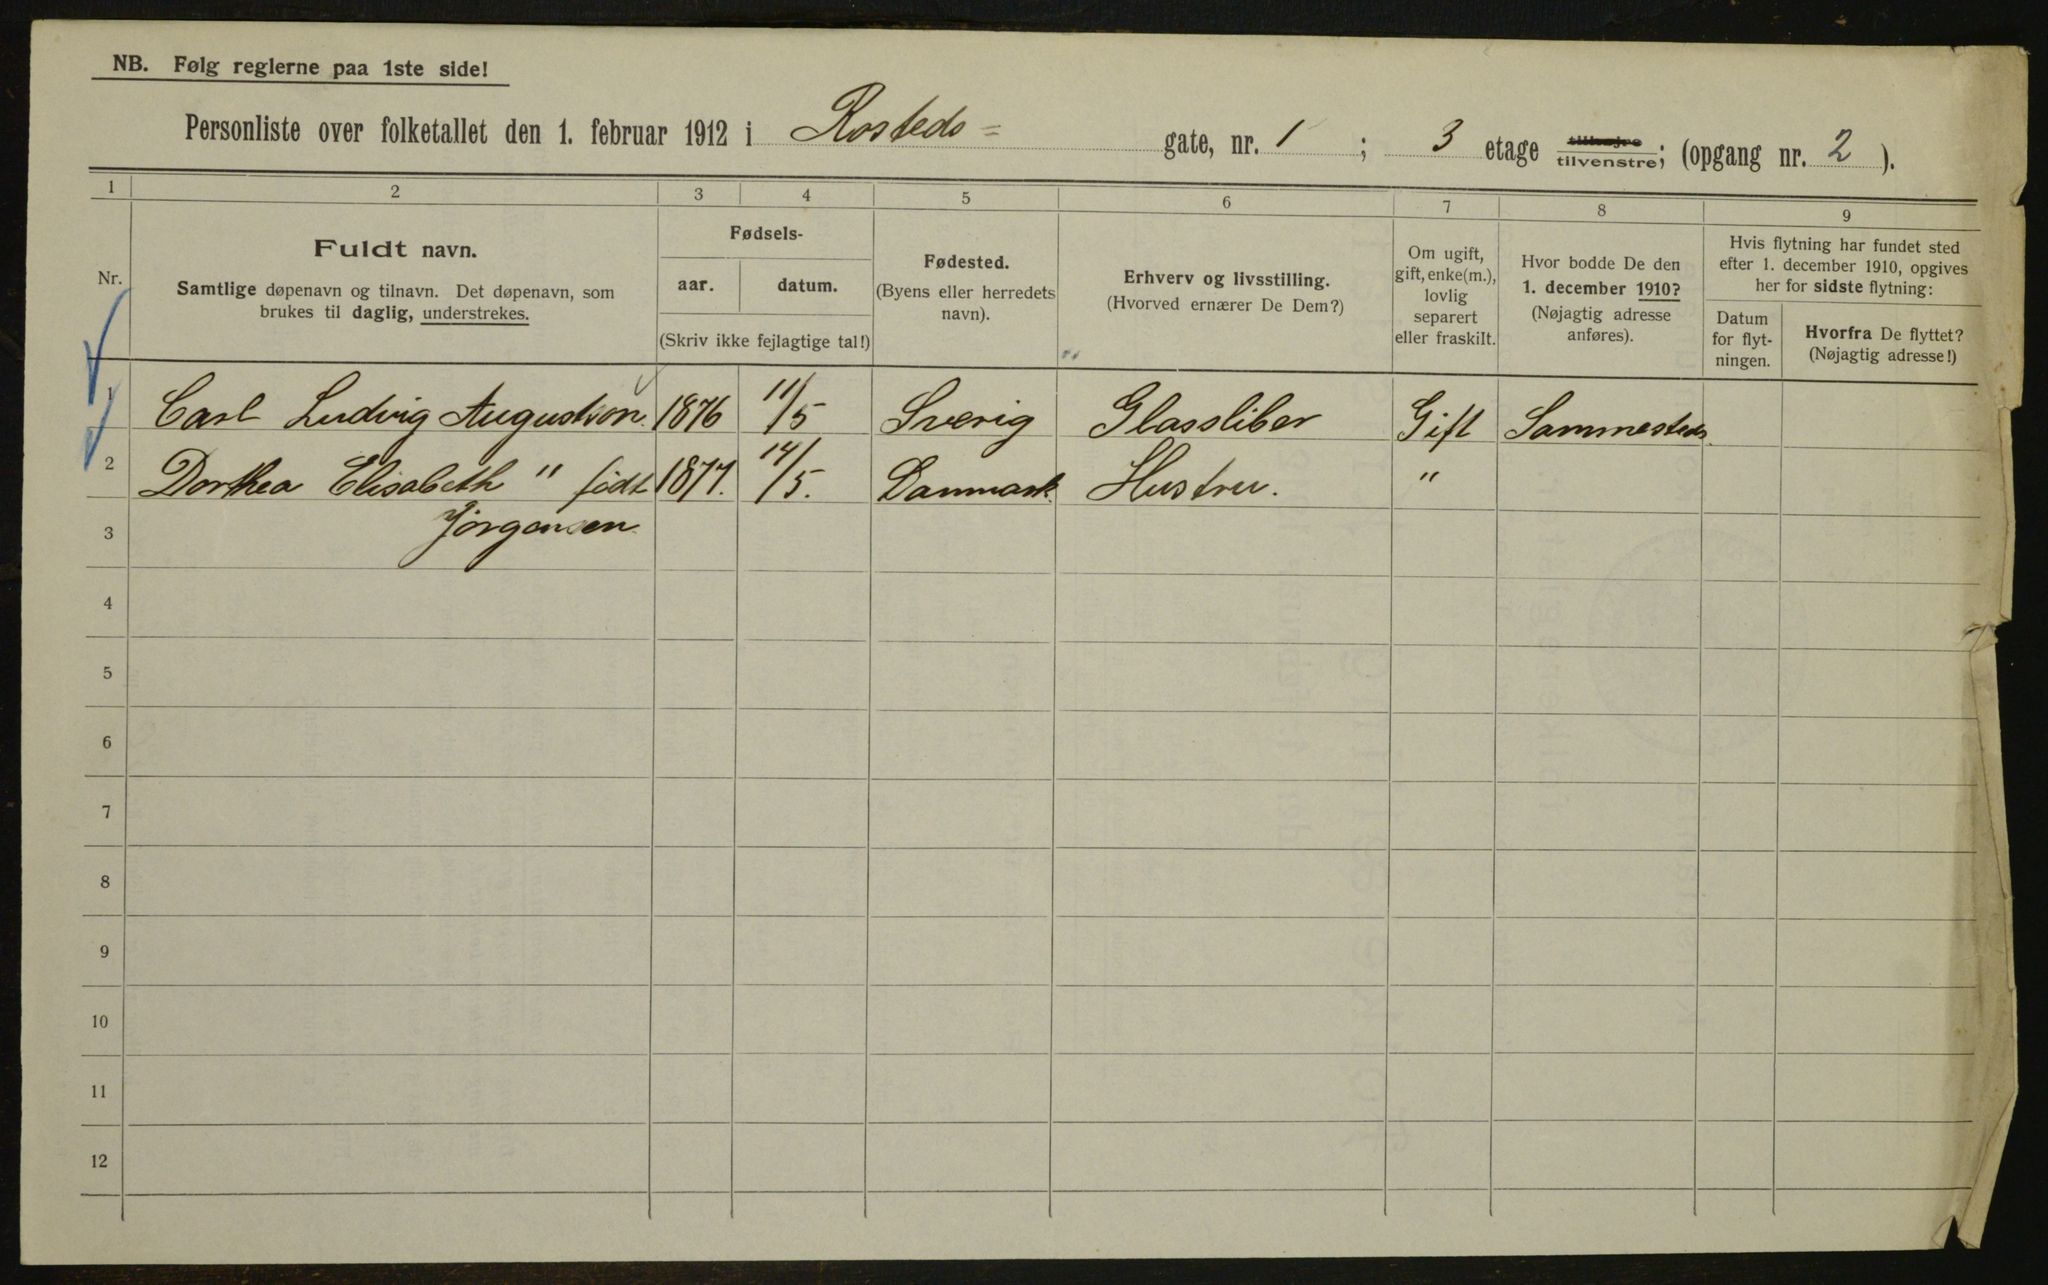 NB. Følg reglerne paa 1ste side!
Personliste over folketallet den 1. februar 1912 i Rosteds= gate, nr. 1 ; 3 etage tilhøjre tilvenstre; (opgang nr. 2 ).
1 2 3 4 5 6 7 8 9
Nr.
Fuldt navn.
Samtlige døpenavn og tilnavn. Det døpenavn, som
brukes til daglig, understrekes.
Fødsels-
aar. datum.
(Skriv ikke fejlagtige tal!)
Fødested.
(Byens eller herredets
navn).
Erhverv og livsstilling.
(Hvorved ernærer De Dem?)
Om ugift,
gift, enke(m.),
lovlig
separert
eller fraskilt.
Hvor bodde De den
1. december 1910?
(Nøjagtig adresse
anføres).
Hvis flytning har fundet sted
efter 1. december 1910, opgives
her for sidste flytning:
Datum
for flyt-
ningen.
Hvorfra De flyttet?
(Nøjagtig adresse!)
1 Carl Ludvig Augustson 1876 11/5 Sverig Glassliber Gift Sammesteds
2 Dorthea Elisabeth " født 1877. 14/5. Danmark Hustru. "
3 Jörgensen
4
5
6
7
8
9
10
11
12